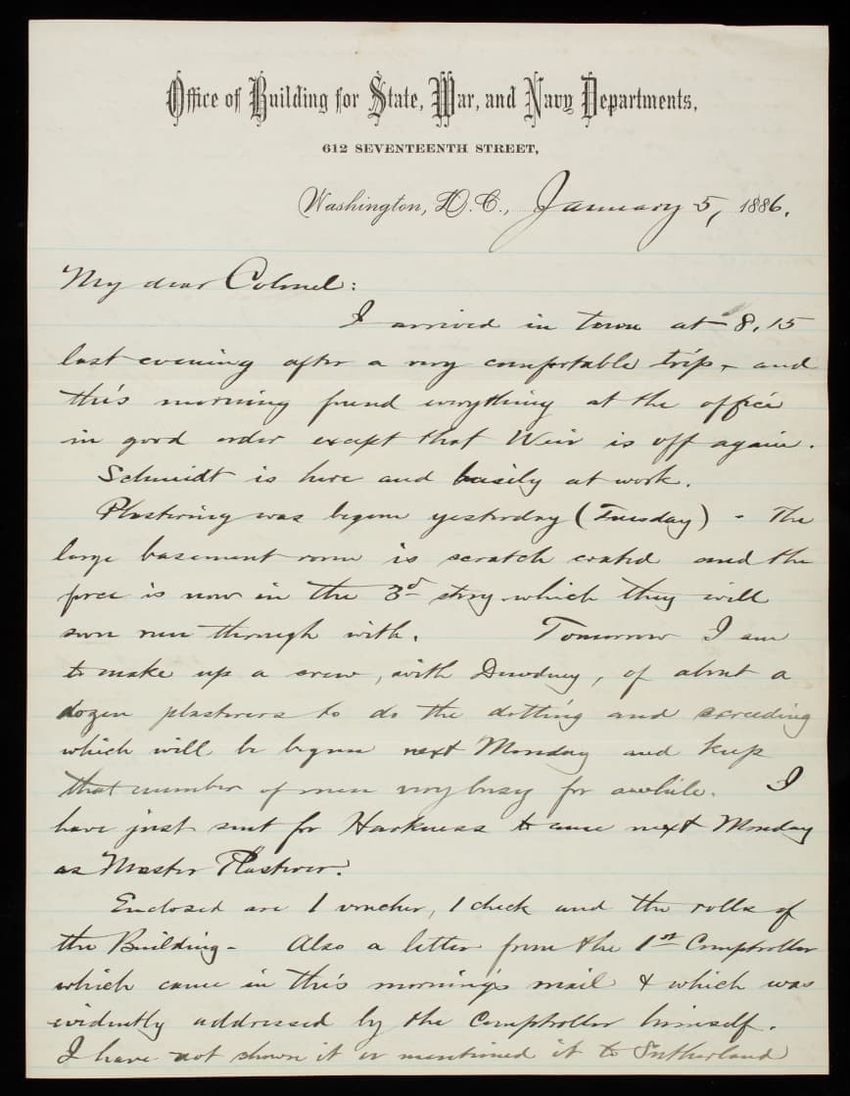 Office of Building for State, War, and Navy Departments,
612 SEVENTEENTH STREET,
Washington, D.C., January 5, 1886.
My dear Colonel:
I arrived in town at 8.15
last evening after a very comfortable trip, and
this morning found everything at the office
in good order except that Weir is off again.
Schmidt is here and busily at work.
Plastering was begun yesterday (Tuesday) - The
large basement room is scratch coated and the
force is now in the 3d story which they will
soon run through with. Tomorrow I am
to make up a crew, with Dewdney, of about a
dozen plasterers to do the dotting and screeding
which will be begun next Monday and keep
that number of men very busy for awhile. I
have just sent for Harkness to come next Monday
as Master Plasterer.
Enclosed are 1 voucher, 1 check and the rolls of
the Building - Also a letter from the 1st Comptroller
which came in this morning's mail & which was
evidently addressed by the Comptroller himself.
I have not shown it or mentioned it to Sutherland